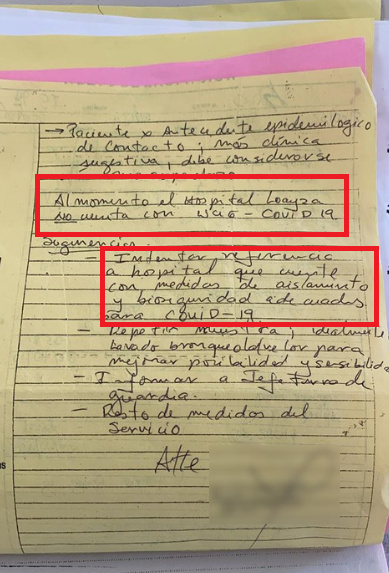 → Paciente x Antecedente epidemilogico
de contacto; más clínica
sugestiva, debe considerarse
Al momento el Hospital Loayza
NO cuenta con UCIG - COVID 19
Sugerencias
- Intentar referencia
a hospital que cuente
con medidas de aislamiento
y bioseguridad adecuados
para COVID-19
- Repetir muestra; idealmente
lavado bronqueolalveolar para
mejorar posibilidad y sensibilidad
- Informar a Jefatura de
guardia.
- Resto de medidas del
Servicio
Atte